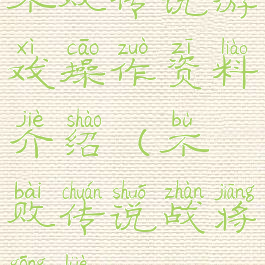 xì cāo zuò zī liào
戏操作资料
jiè shào bù
介绍（不
bài chuán shuō zhàn jiāng
败传说战将